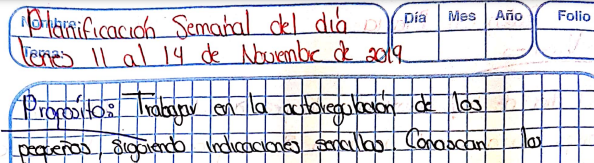 Nombre: Planificación Semanal del día
Día Mes Año Folio
Tema: lunes 11 al 14 de Noviembre de 2019
Proposito: Trabajar en la autoregulación de las
pequeños, siguiendo indicaciones sencillas. Conoscan lo